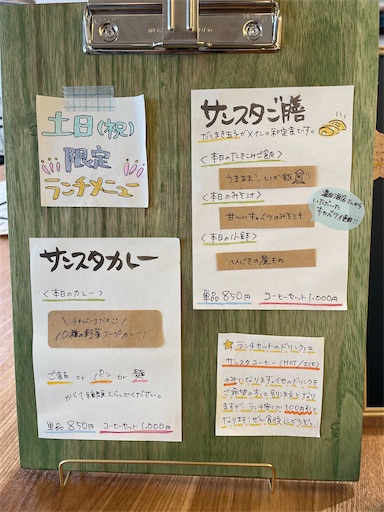 土日(祝)
限定
ランチメニュー
サンスタご膳
だしまき玉子がメインの和定食です。
<本日のたきこみご飯>
うまうま♡いか飯
<本日のみそ汁>
甘〜いキャベツのみそ汁
<本日の小鉢>
ひじきの煮もの
いただいた
キャベツ使用!!
単品 850円 コーヒーセット 1,000円
サンスタカレー
<本日のカレー>
10種の野菜スープカレー
ご飯 or パン or 麺
から1種類えらんでください。
単品 850円 コーヒーセット 1,000円
ランチセットのドリンクは
サンスタコーヒー(HOT/ICE)
のみになります。他のドリンクを
ご希望の方は、別に注文となり
ますが、ランチ後に 100円引と
なります!ぜひ食後にどうぞ。